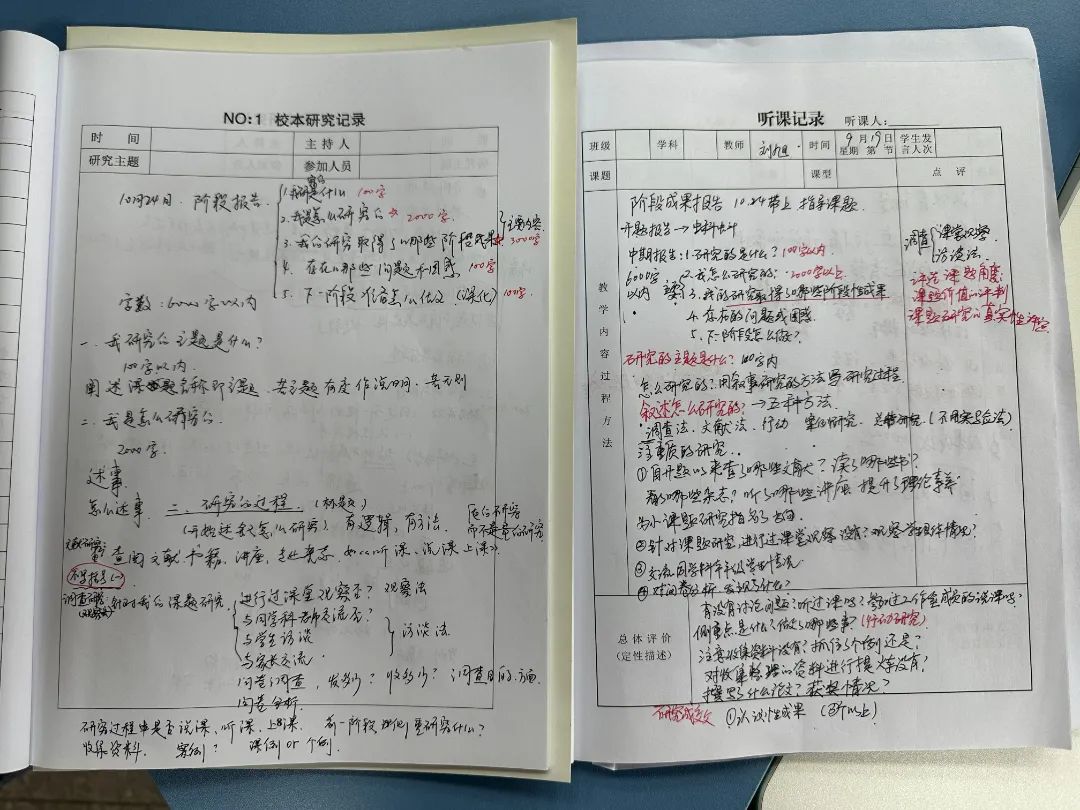 NO:1 校本研究记录
时 间
主 持 人
研究主题
参加人员
10月24日. 阶段报告.
1. 我研究是什么 100字
2. 我是怎么研究的 → 2000字.
3. 我的研究取得了哪些阶段成果 3000字
主要内容
4. 存在哪些问题和困惑 100字
5. 下一阶段准备怎么做 (深化) 100字
字数: 6000字以内
一. 我研究的主题是什么?
100字以内.
阐述课题名称即主题
二. 我是怎么研究的.
2000字.
述事.
怎么述事. 二. 研究的过程. (标题)
(开始述我怎么研究) 有逻辑, 有方法.
查阅文献. 书籍. 讲座,
调查研究
针对我的课题研究
进行过课堂观察否? 观察法
与同学科老师交流否?
与学生访谈
与家长交流.
访谈法.
问卷调查, 发多少? 收多少? 调查目的.方面.
问卷分析.
研究过程中是否说课、听课、上课. 前一阶段
收集资料. 案例? 课例 or 个例.
听课记录 听课人:
班级
学科
教师
时间
9月19日
星期 第 节
学生发言人次
课题
课型
点 评
教学内容过程方法
阶段成果报告 10.24带上 指导课题.
开题报告→
中期报告: 1.研究的是什么? 100字以内
6000字以内
2.我怎么研究的: 2000字以上
3. 我的研究取得了哪些阶段性成果
4. 存在的问题或困惑.
5. 下一阶段怎么做?
调查
课堂观察
访谈法.
评选课题角度:
课题价值的评判
课题研究的真实性评定
研究的主题是什么? 100字内
怎么研究的? 用叙事研究的方法写研究过程.
叙述怎么研究的? →五种方法.
调查法. 文献法. 行动 案例研究. (不用实验法).
注事质的研究..
①自开题以来查了哪些文献? 读了哪些书?
看了哪些杂志? 听了哪些讲座 提升了理论素养
为小课题研究指名了方向.
②针对课题研究, 进行过课堂观察没有? 观察学生
③交流同学科
④对问卷分析 发现了什么?
总体评价
(定性描述)
有没有讨论问题? 听过课吗? 参加过工作室成员的说课吗?
侧重点是什么? 做了哪些事? (行动研究)
注意收集资料没有? 抓住了个例还是?
对收集整理的资料进行提炼没有?
撰写了什么论文? 获奖情况?
研究成效 ①认识性成果